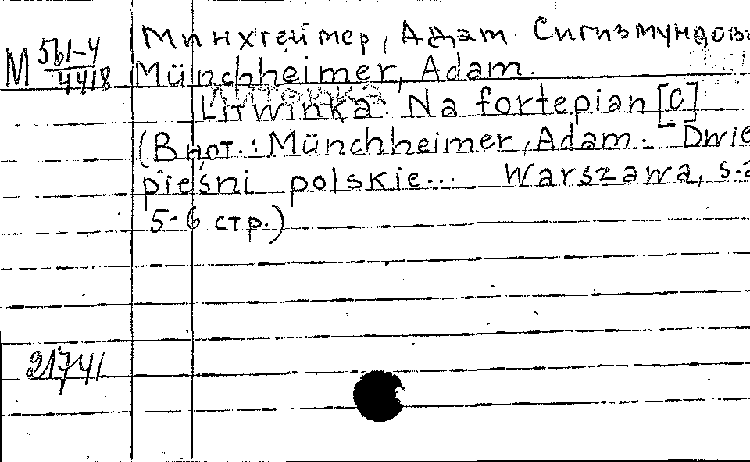 М 561-4
4418
Минхгеймер, Адам Сигизмундов
Münchheimer, Adam.
Litwinka. Na fortepian [C]
(В нот.: Münchheimer, Adam. Dwie
pieśni polskie... Warszawa, s.a
5-6 стр.)
21741